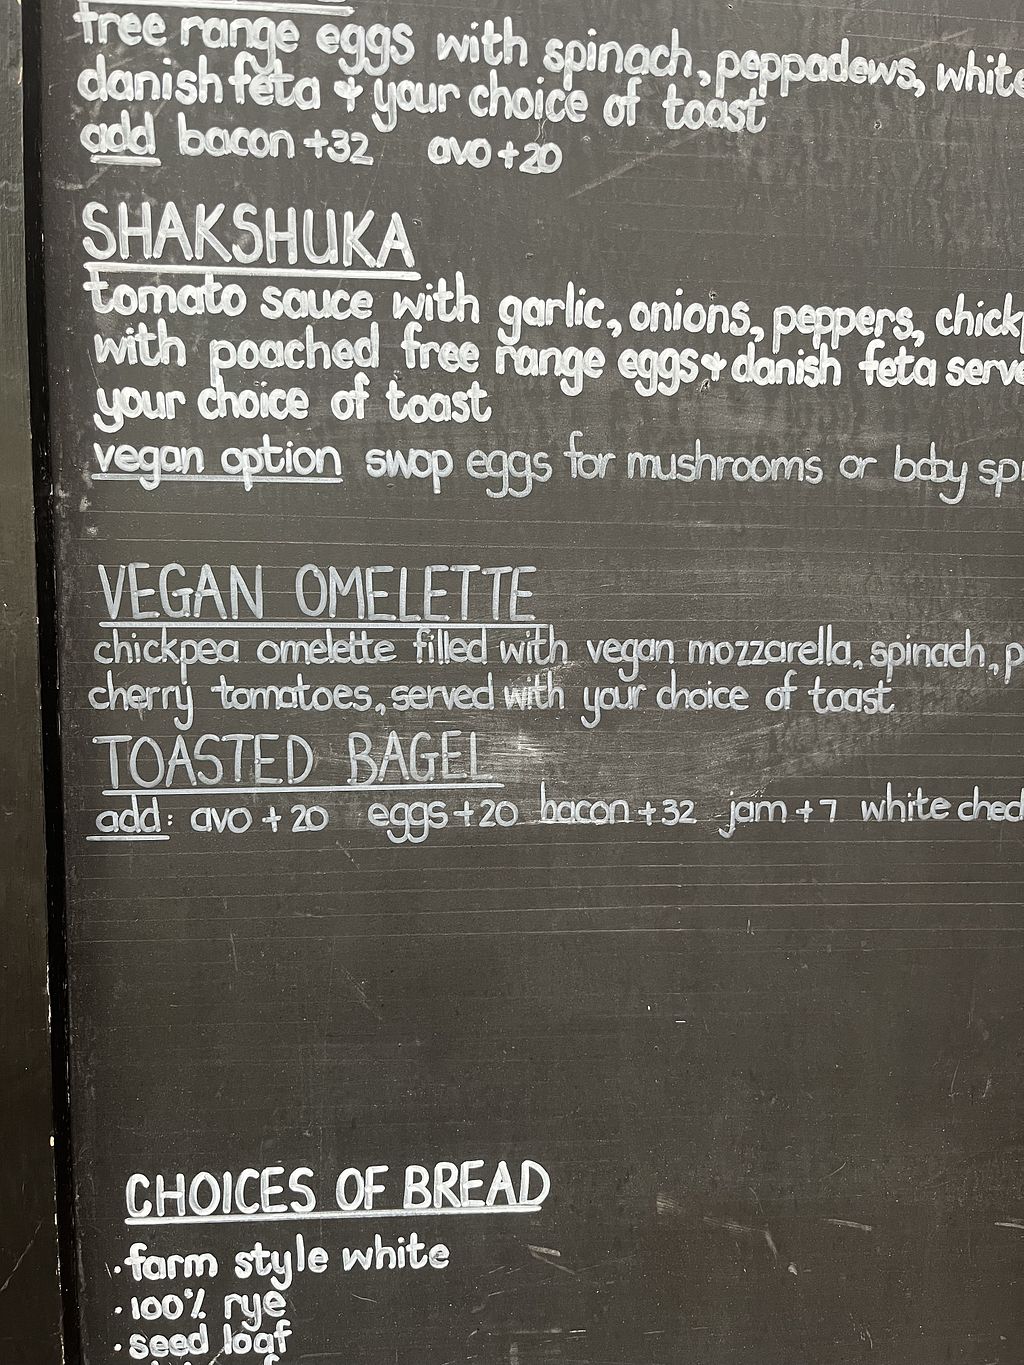 free range eggs with spinach, peppadews, white
danish feta & your choice of toast
add bacon +32 avo +20
SHAKSHUKA
tomato sauce with garlic, onions, peppers, chickp
with poached free range eggs & danish feta serve
your choice of toast
vegan option swop eggs for mushrooms or baby sp
VEGAN OMELETTE
chickpea omelette filled with vegan mozzarella, spinach, p
cherry tomatoes, served with your choice of toast
TOASTED BAGEL
add: avo +20 eggs +20 bacon +32 jam +7 white ched
CHOICES OF BREAD
· farm style white
· 100% rye
· seed loaf